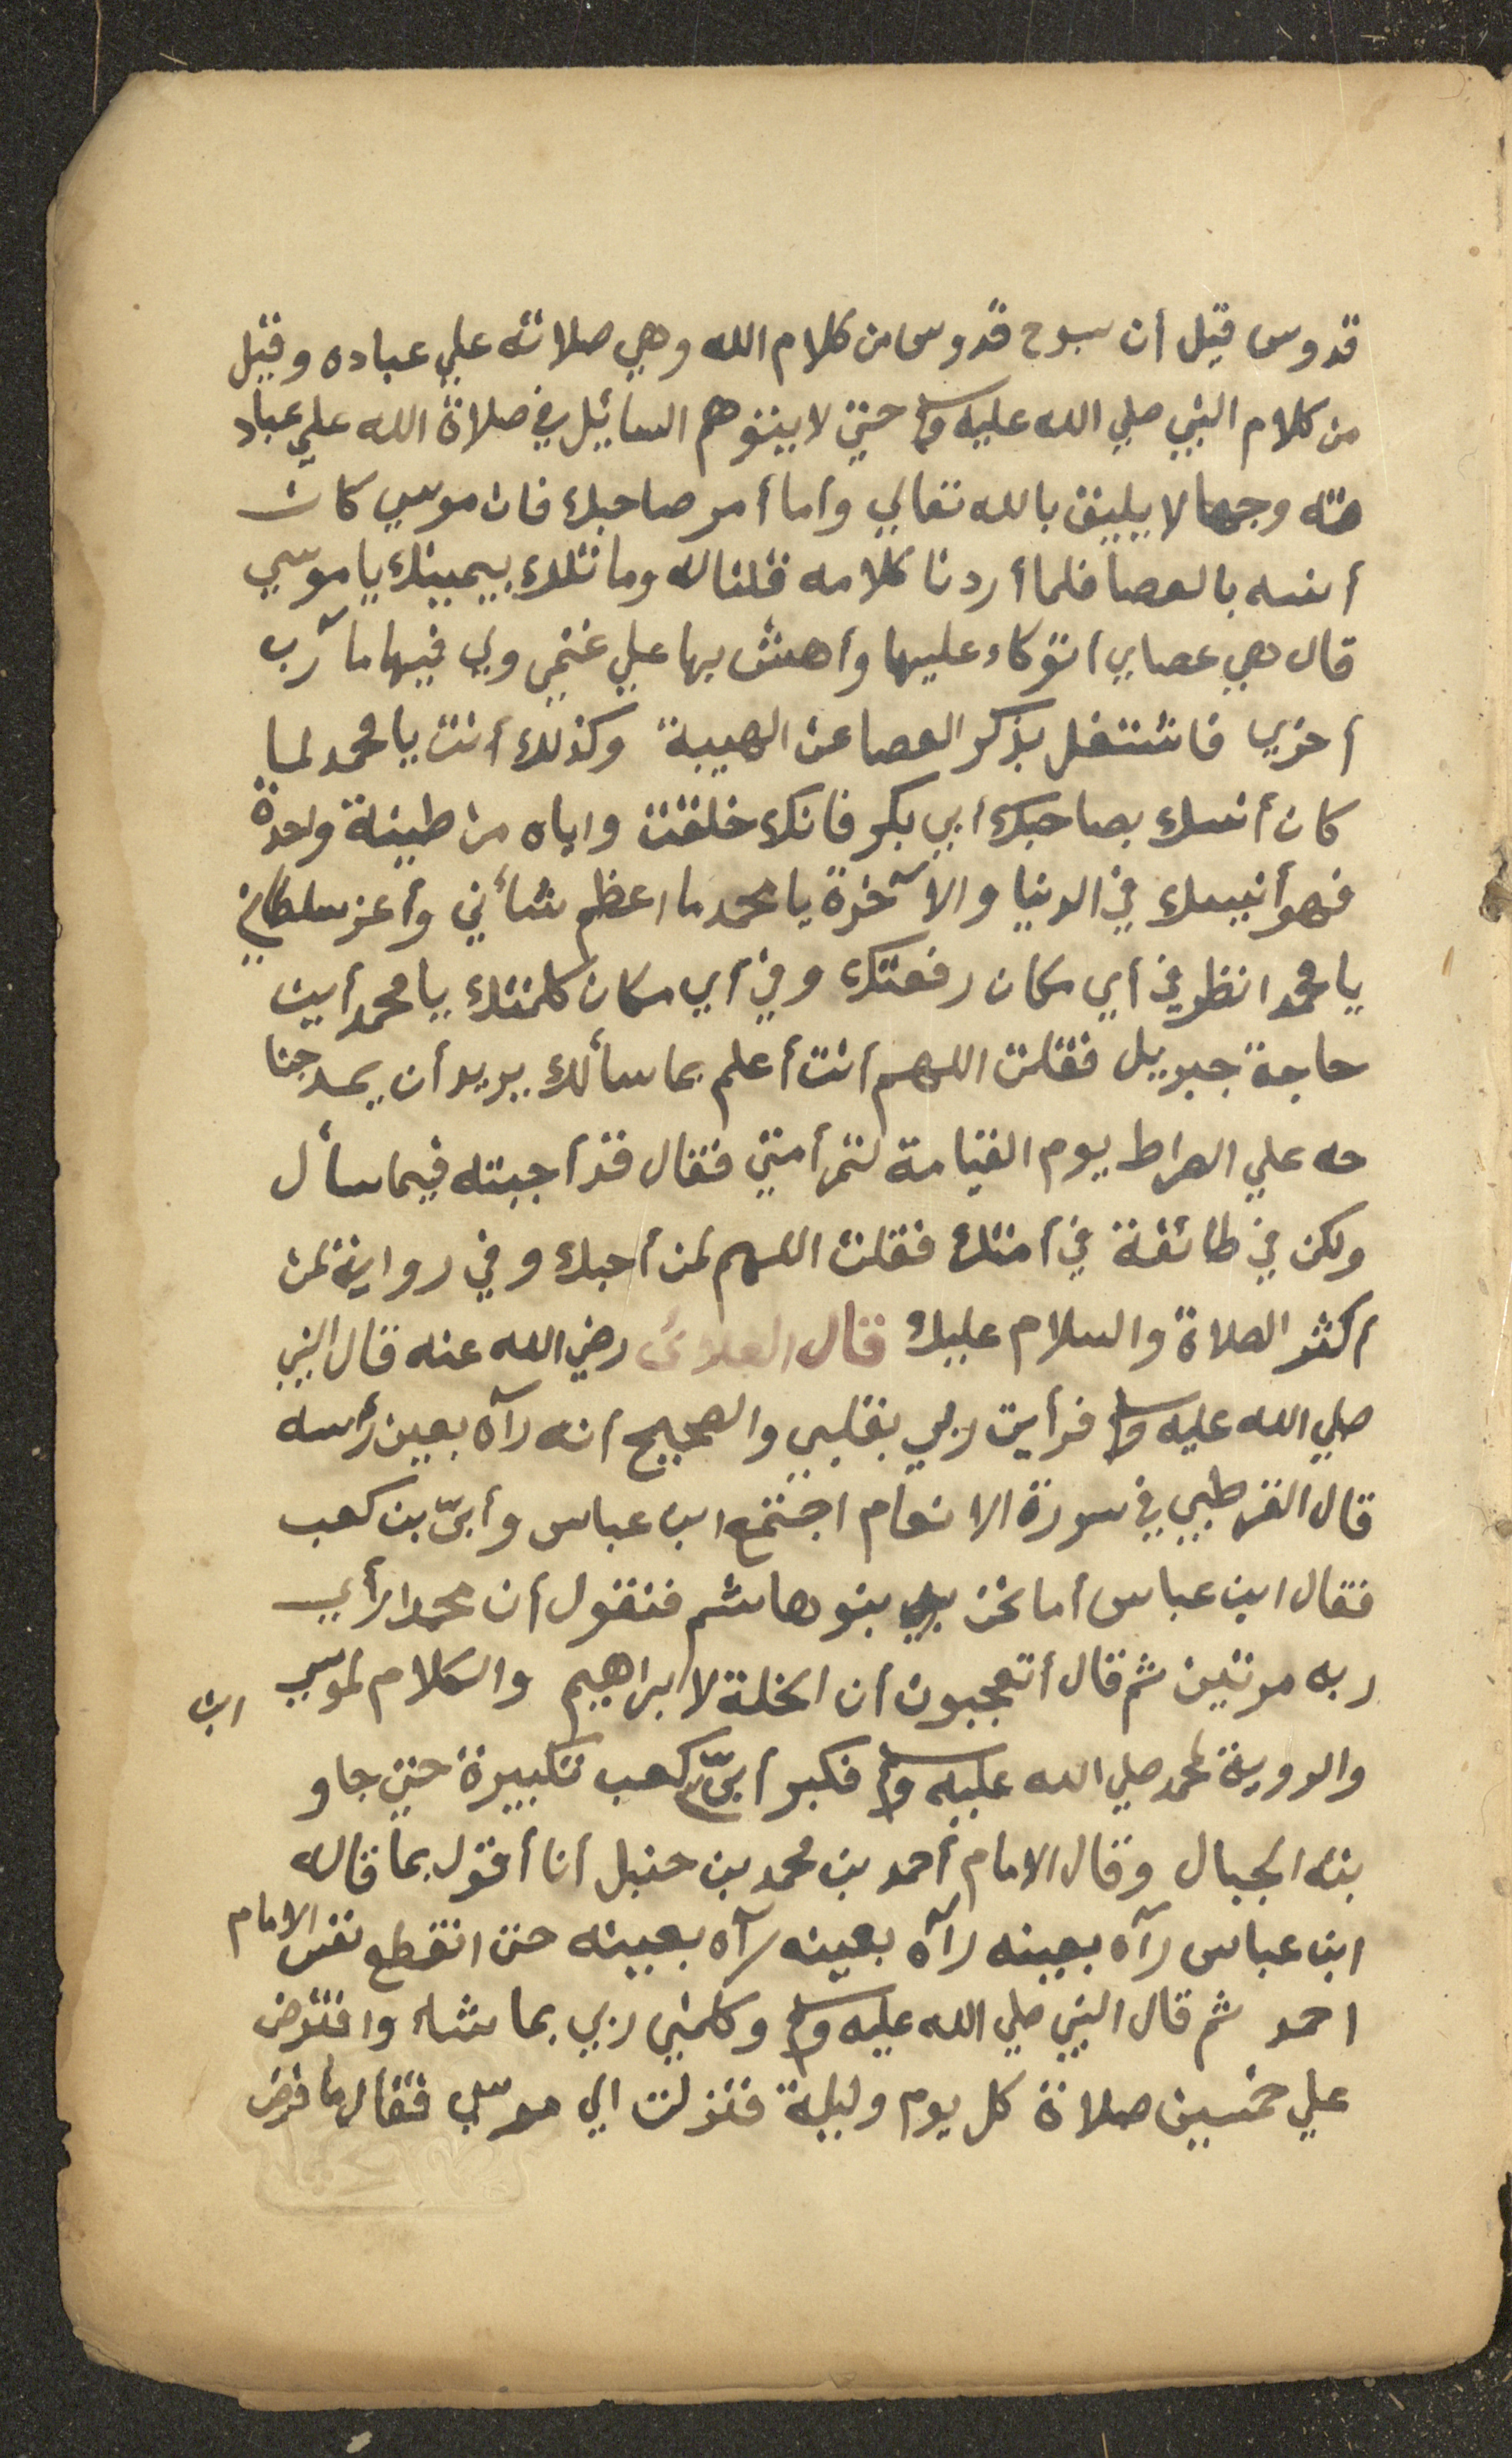 قدوس قيل أن سبوح قدوس من كلام الله وهي صلاته علي عباده وقيل
من كلام النبي صلي الله عليه وسلم حتي لا يتوهم السائيل في صلاة الله علي عباد
هته وجها لا يليق بالله تعالي وأما أمر صاحبك فان موسي كان
أنسه بالعصا فلما أردنا كلامه قلنا له وما تلك بيمينك يا موسي
قال هي عصاي اتوكاء عليها وأهش بها علي غنمي ولي فيها مآرب
أخري فاشتغل بذكر العصا عن الهيبة وكذلك أنت يا محمد لما
كان أنسك بصاحبك أبي بكر فانك خلقت واياه من طينة واحدة
فهو أنيسك في الدنيا والآخرة يا محمد ما اعظم شأني وأعز سلطاني
يا محمد انظر في أي مكان رفعتك وفي أي مكان كلمتك يا محمد أين
حاجة جبريل فقلت اللهم أنت أعلم بما سألك يريد أن يمد جنا
حه علي الصراط يوم القيامة لتمر أمتي فقال قد أجبته فيما سأل
ولكن في طائفة في أمتك فقلت اللهم لمن أحبك وفي رواية لمن
أكثر الصلاة والسلام عليك قال العلائ رضي الله عنه قال النبي
صلي الله عليه وسلم فرأيت ربي بقلبي والصحيح أنه رآه بعين رأسه
قال القرطبي في سورة الانعام اجتمع ابن عباس وأبيّ بن كعب
فقال ابن عباس أما نحن بنو هاشم فنقول أن محمدا رأي
ربه مرتين ثم قال أتعجبون أن الخلة لابراهيم والكلام لموسي
والروية لمحمد صلي الله عليه وسلم فكبر أبيّ كعب تكبيرة حتي جاو
ابن
بته الجبال وقال الامام أحمد بن محمد بن حنبل أنا أقول بما قاله
ابن عباس رآه بعينه رآه بعينه رآه بعينه حتي انقطع نفس الامام
احمد ثم قال النبي صلي الله عليه وسلم وكلمني ربي بما شاء وافترض
علي خمسين صلاة كل يوم وليلة فنزلت الي موسي فقال ما فرض